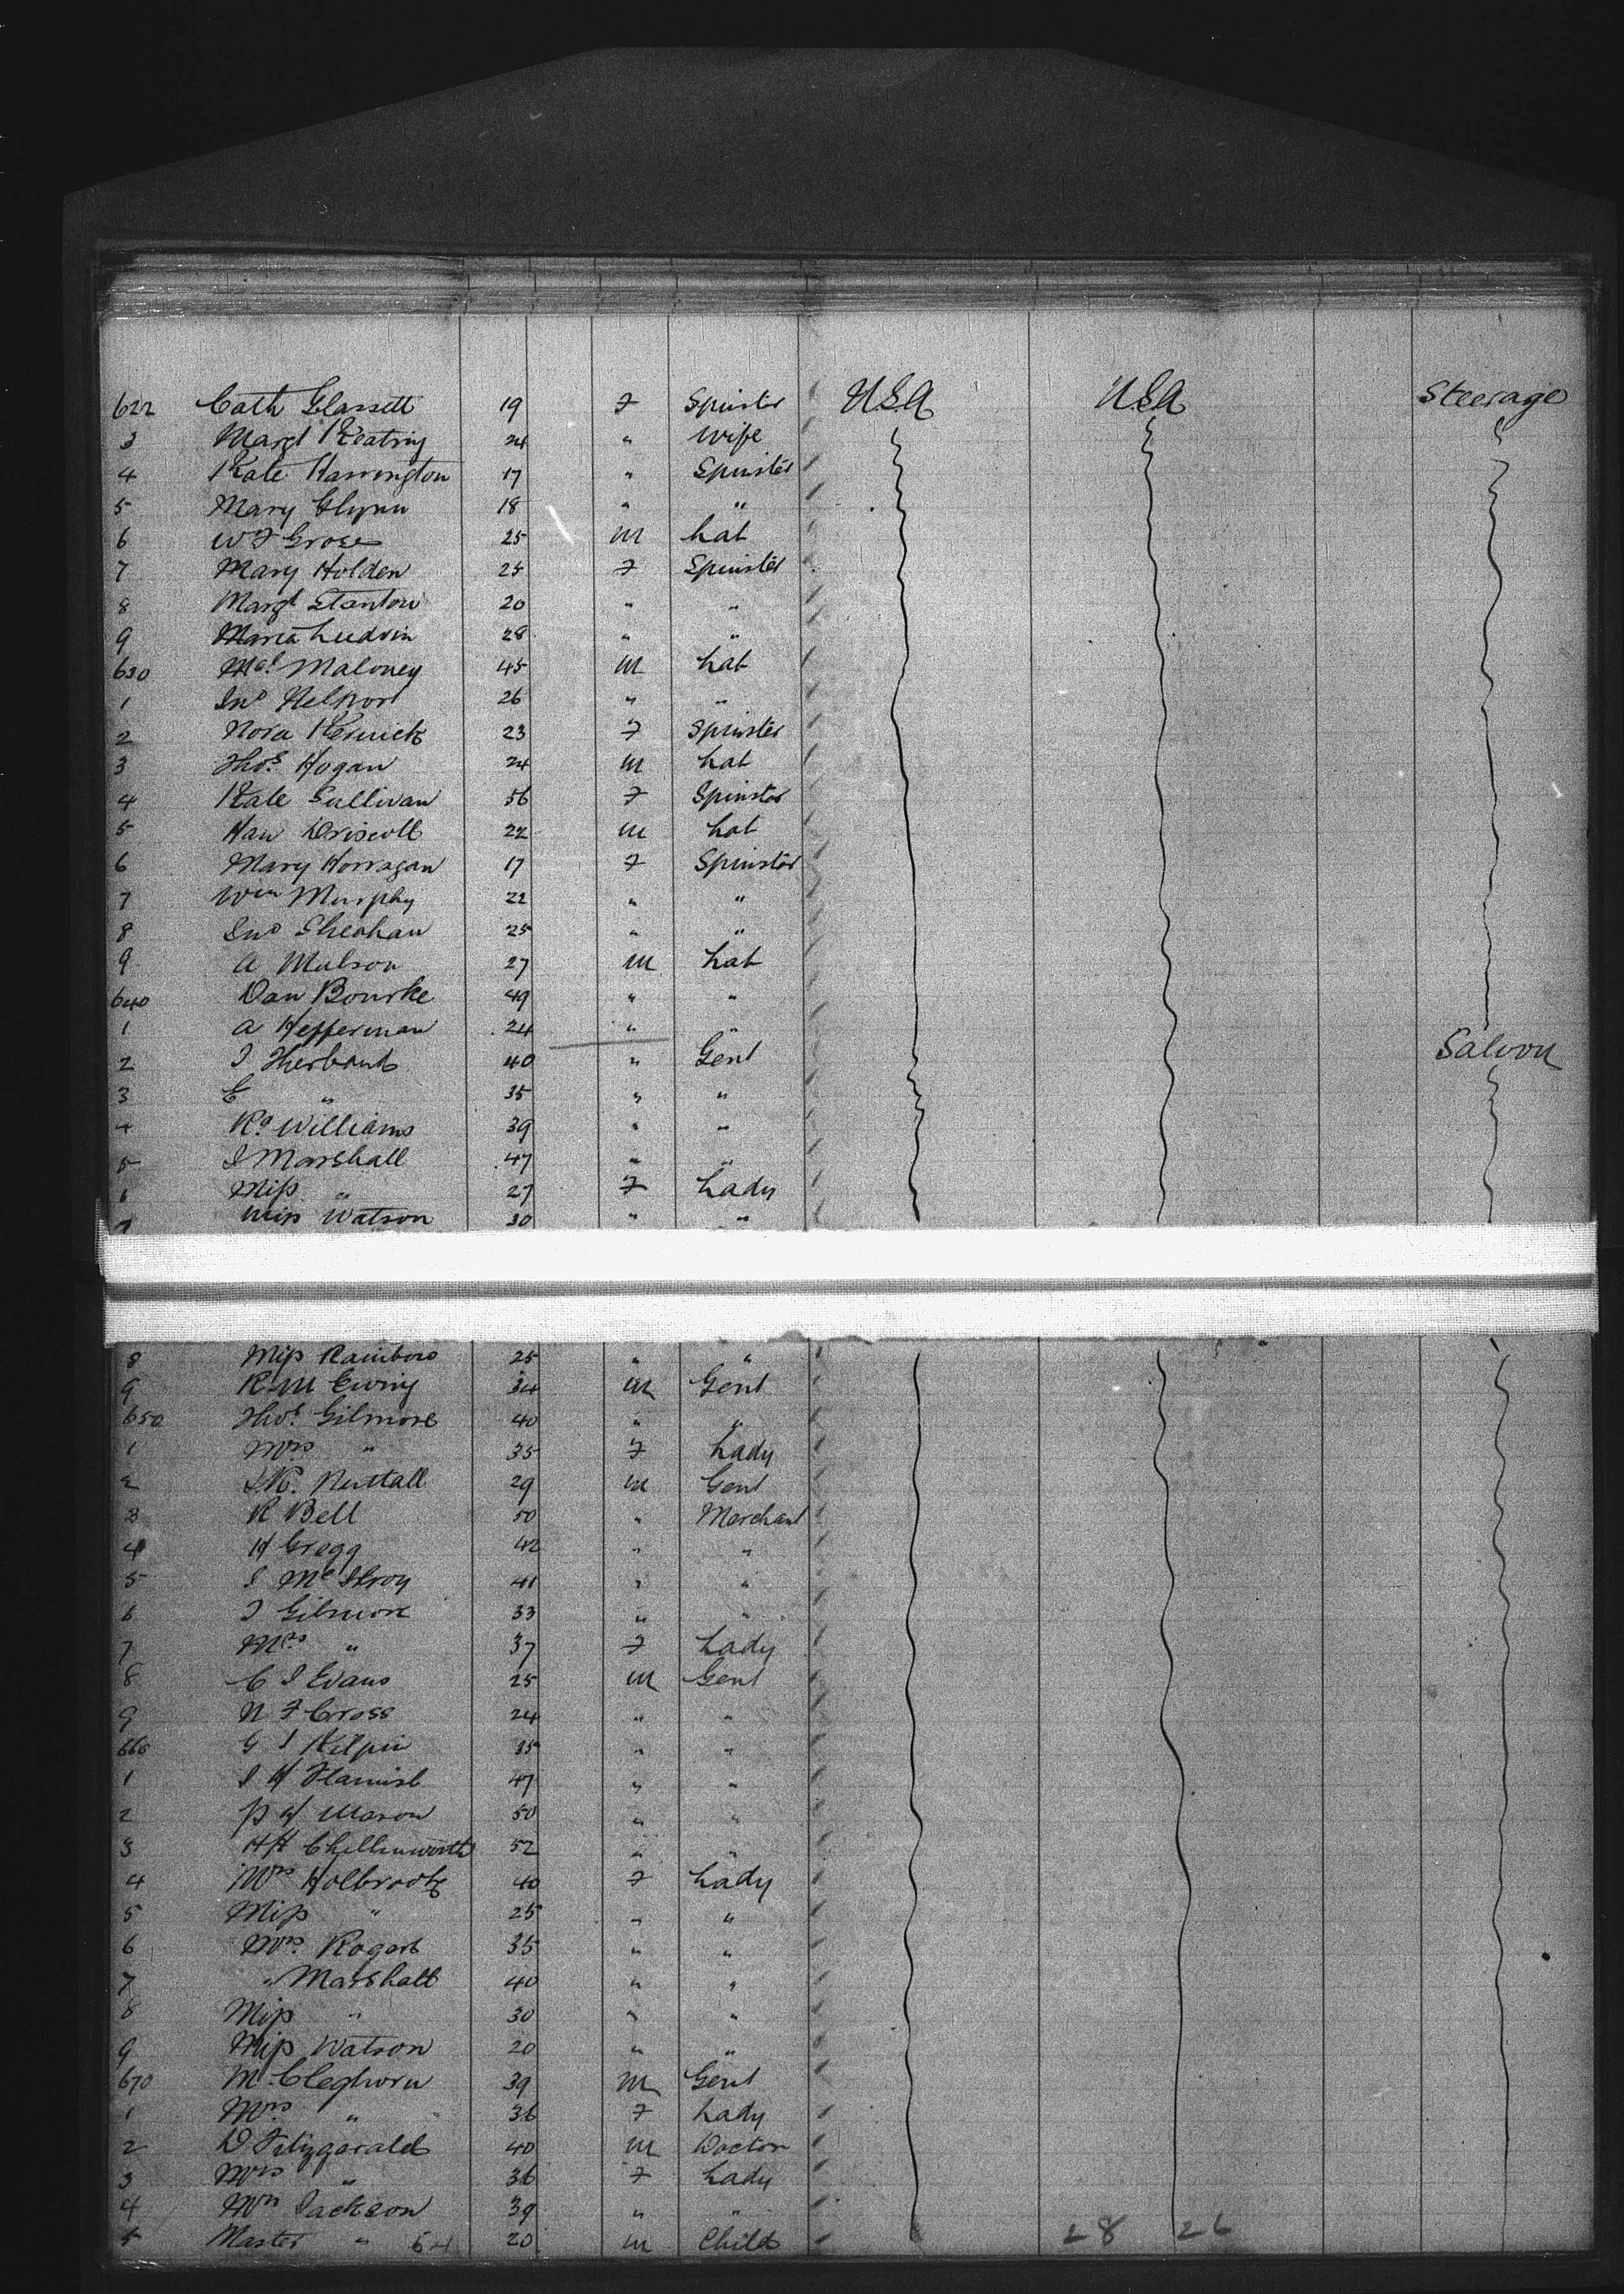 622 Cath Glassett 19 F Spinster USA USA Steerage
3 Margt Keating 24 " Wife
4 Kate Harrington 17 " Spinster
5 Mary Glynn 18 " "
6 W F Grose 25 M Lab
7 Mary Holden 25 F Spinster
8 Margt Stanton 20 " "
9 Maria Ludvin 28 " "
630 Mal Maloney 45 M Lab
1 Jno 26 " "
2 Nora 23 F Spinster
3 Thos Hogan 24 M Lab
4 Kate Sullivan 56 F Spinster
5 Han Driscoll 22 M Lab
6 Mary Horragan 17 F Spinster
7 Wm Murphy 22 " "
8 Jno Sheahan 25 " "
9 A Mulson 27 M Lab
640 Dan Bourke 49 " "
1 A Hefferman 24 " "
2 J Herbant 40 " Gent Saloon
3 E " 35 " "
4 Rd Williams 39 " "
5 J Marshall 47 " "
6 Miss " 27 F Lady
7 Miss Watson 30 " "
8 Miss Rainbow 25 " "
9 R M Ewing 34 M Gent
650 Thos Gilmore 40 " "
1 Mrs " 35 F Lady
2 J K Nuttall 29 M Gent
3 R Bell 50 " Merchant
4 H Gregg 42 " "
5 J McIlroy 41 " "
6 J Gilmore 33 " "
7 Mrs " 37 F Lady
8 C J Evans 25 M Gent
9 N F Cross 24 " "
660 G J Kilpin 35 " "
1 J H 47 " "
2 P W Mason 50 " "
3 H H 52 " "
4 Mrs Holbrook 40 F Lady
5 Miss " 25 " "
6 Mrs Rogers 35 " "
7 " Marshall 40 " "
8 Miss " 30 " "
9 Miss Watson 20 " "
670 M Cleghorn 39 M Gent
1 Mrs " 36 F Lady
2 D Fitzgerald 40 M Doctor
3 Mrs " 36 F Lady
4 Mrs Jackson 39 " "
5 Master " 54 20 M Child 28 26